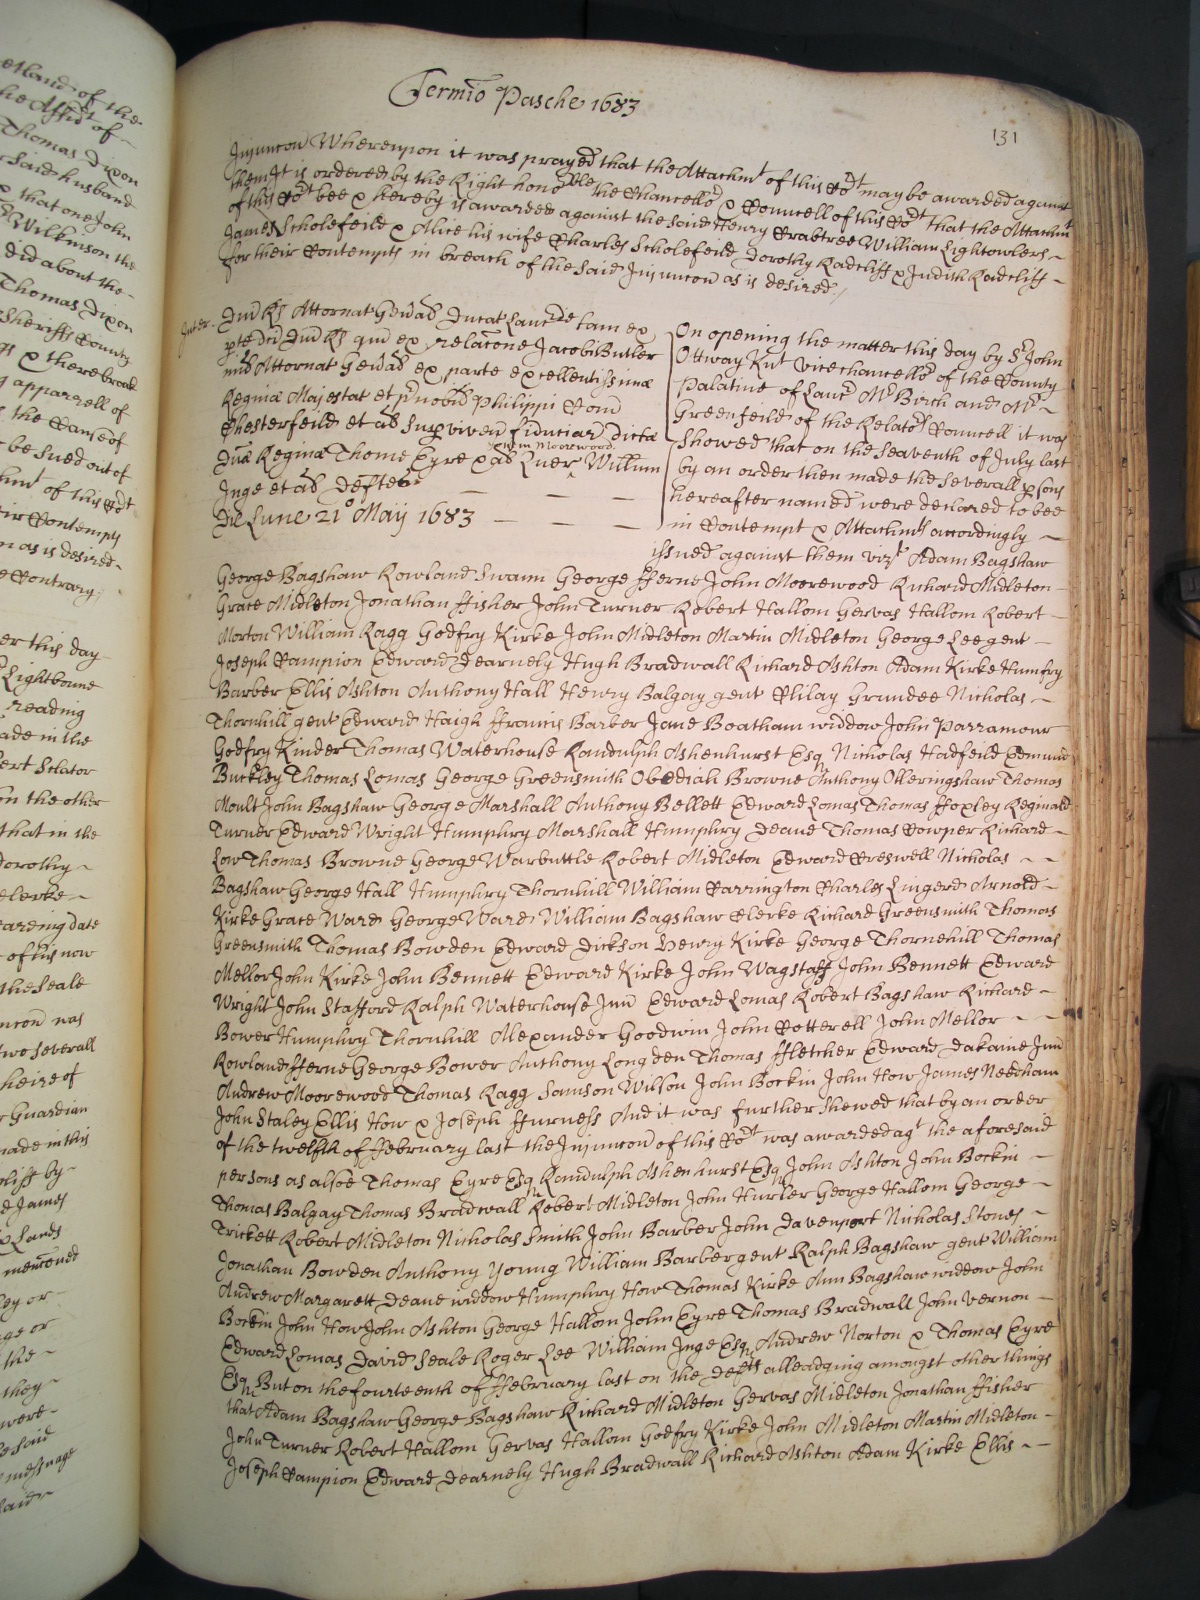 Termio Pasche 1683
131
Injuncon Whereupon it was prayed that the Attachmt of this Cort may be awarded against
them It is ordered by the Right honoble the Chancellor & Councell of this Cort that the Attachmt
of this Cort bee & hereby is awarded against the said Henry Crabtree William Lightowlers
James Scholefeild & Alice his wife Charles Scholefeild Dorothy Radcliff & Judith Radcliff
for their Contempts in breach of the said Injuncon as is desired /
Inter
Dni Rs Attornat Genlal Ducat Lanc tam ex
pte dci Dni Rs qm ex relacone Jacobi Butler
Attornat Genlal ex parte excellentissimæ
Reginæ Majestat et prnobis Philippi Com
Chesterfeild et al Superviven fiduciar Dictæ
Dnæ Reginæ Thome Eyre & al Quer Willum
Johem Moorewood
Inge et al Defte
Die Lune 21o May 1683
On opening the matter this day by Sr John
Ottway Knt Vicechancellor of the County
Palatine of Lancr Mr Birch and Mr
Greenfeild of the Relators Councell it was
shewed that on the Seaventh of July last
by an order then made the severall psons
hereafter named were declared to bee
in Contempt & Attachmts accordingly
issued against them vizt Adam Bagshaw
George Bagshaw Rowland Swann George fferne John Moorewood Richard Midleton
Grace Midleton Jonathan ffisher John Turner Robert Hallom Gervas Hallom Robert
Morton William Ragg Godfry Kirke John Midleton Martin Midleton George Lee gent
Joseph Campion Edward Dearnely Hugh Bradwall Richard Ashton Adam Kirke Humfry
Barber Ellis Ashton Anthony Hall Henry Balgay gent Grundee Nicholas
Thornhill gent Edward Haigh ffrancis Barber Jane Boatham widdow John Parramour
Godfry Kinder Thomas Waterhouse Randulph Ashenhurst Esqr Nicholas Hadfeild Edmund
Buckley Thomas Lomas George Greensmith Obediah Browne Anthony Olleringshaw Thomas
Moult John Bagshaw George Marshall Anthony Bellett Edward Lomas Thomas ffoxley Reginald
Turner Edward Wright Humphry Marshall Humphry Deane Thomas Cowper Richard
Low Thomas Browne George Warbuttle Robert Midleton Edward Creswell Nicholas
Bagshaw George Hall Humphry Thornhill William Carrington Charles Lingerd Arnold
Kirke Grace Ward George Ward William Bagshaw Clerke Richard Greensmith Thomas
Greensmith Thomas Bowden Edward Dickson Henry Kirke George Thornehill Thomas
Mellor John Kirke John Bennett Edward Kirke John Wagstaff John Bennett Edward
Wright John Stafford Ralph Waterhouse Junr Edward Lomas Robert Bagshaw Richard
Bower Humphry Thornhill Alexander Goodwin John Cotterell John Mellor
Rowland fferne George Bower Anthony Longden Thomas ffletcher Edward Dakaine Junr
Andrew Moorewood Thomas Ragg Samson Wilson John Bockin John How James Needham
John Staley Ellis How & Joseph ffurness And it was further shewed that by an order
of the twelfth of ffebruary last the Injuncon of this Cort was awarded agt the aforesaid
persons as alsoe Thomas Eyre Esqr Randulph Ashenhurst Esqr John Ashton John Bockin
Thomas Balgay Thomas Bradwall Robert Midleton John Hurler George Hallom George
Trickett Robert Midleton Nicholas Smith John Barber John Davenport Nicholas Stones
Jonathan Bowden Anthony Young William Barber gent Ralph Bagshaw gent William
Andrew Margarett Deane widdow Humphry How Thomas Kirke Ann Bagshaw widdow John
Bockin John How John Ashton George Hallom John Eyre Thomas Bradwall John Vernon
Edward Lomas David Seale Roger Lee William Inge Esqr Andrew Norton & Thomas Eyre
Esqr But on the fourteenth of ffebruary last on the Defts alleadging amongst other things
that Adam Bagshaw George Bagshaw Richard Midleton Gervas Midleton Jonathan ffisher
John Turner Robert Hallom Gervas Hallom Godfry Kirke John Midleton Martin Midleton
Joseph Campion Edward Dearnely Hugh Bradwall Richard Ashton Adam Kirke Ellis